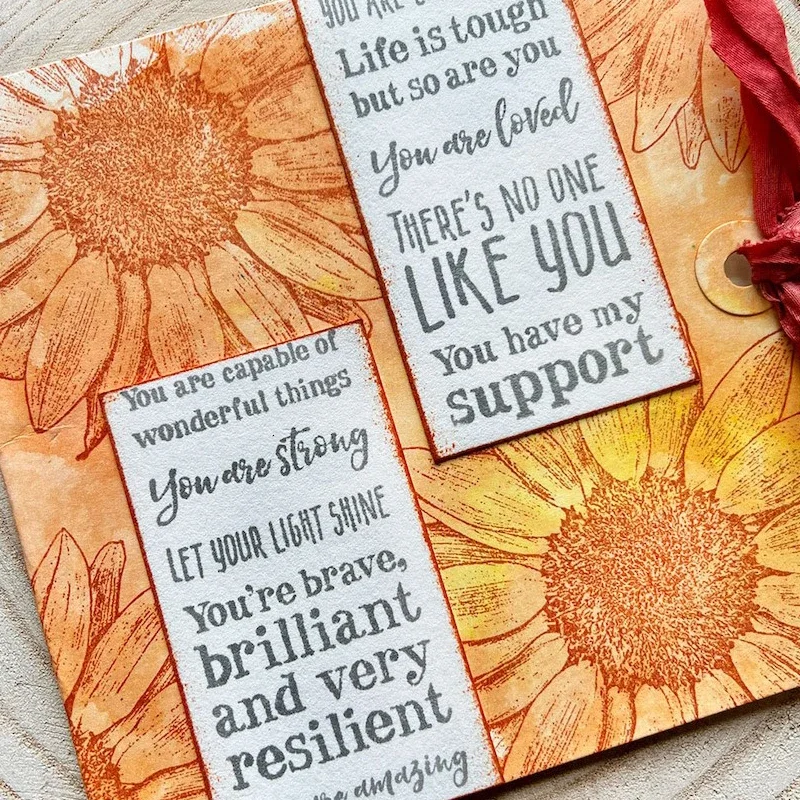 YOU ARE
Life is tough
but so are you
You are loved
THERE'S NO ONE
LIKE YOU
You have my
support
You are capable of
wonderful things
You are strong
LET YOUR LIGHT SHINE
You're brave,
brilliant
and very
resilient
are amazing